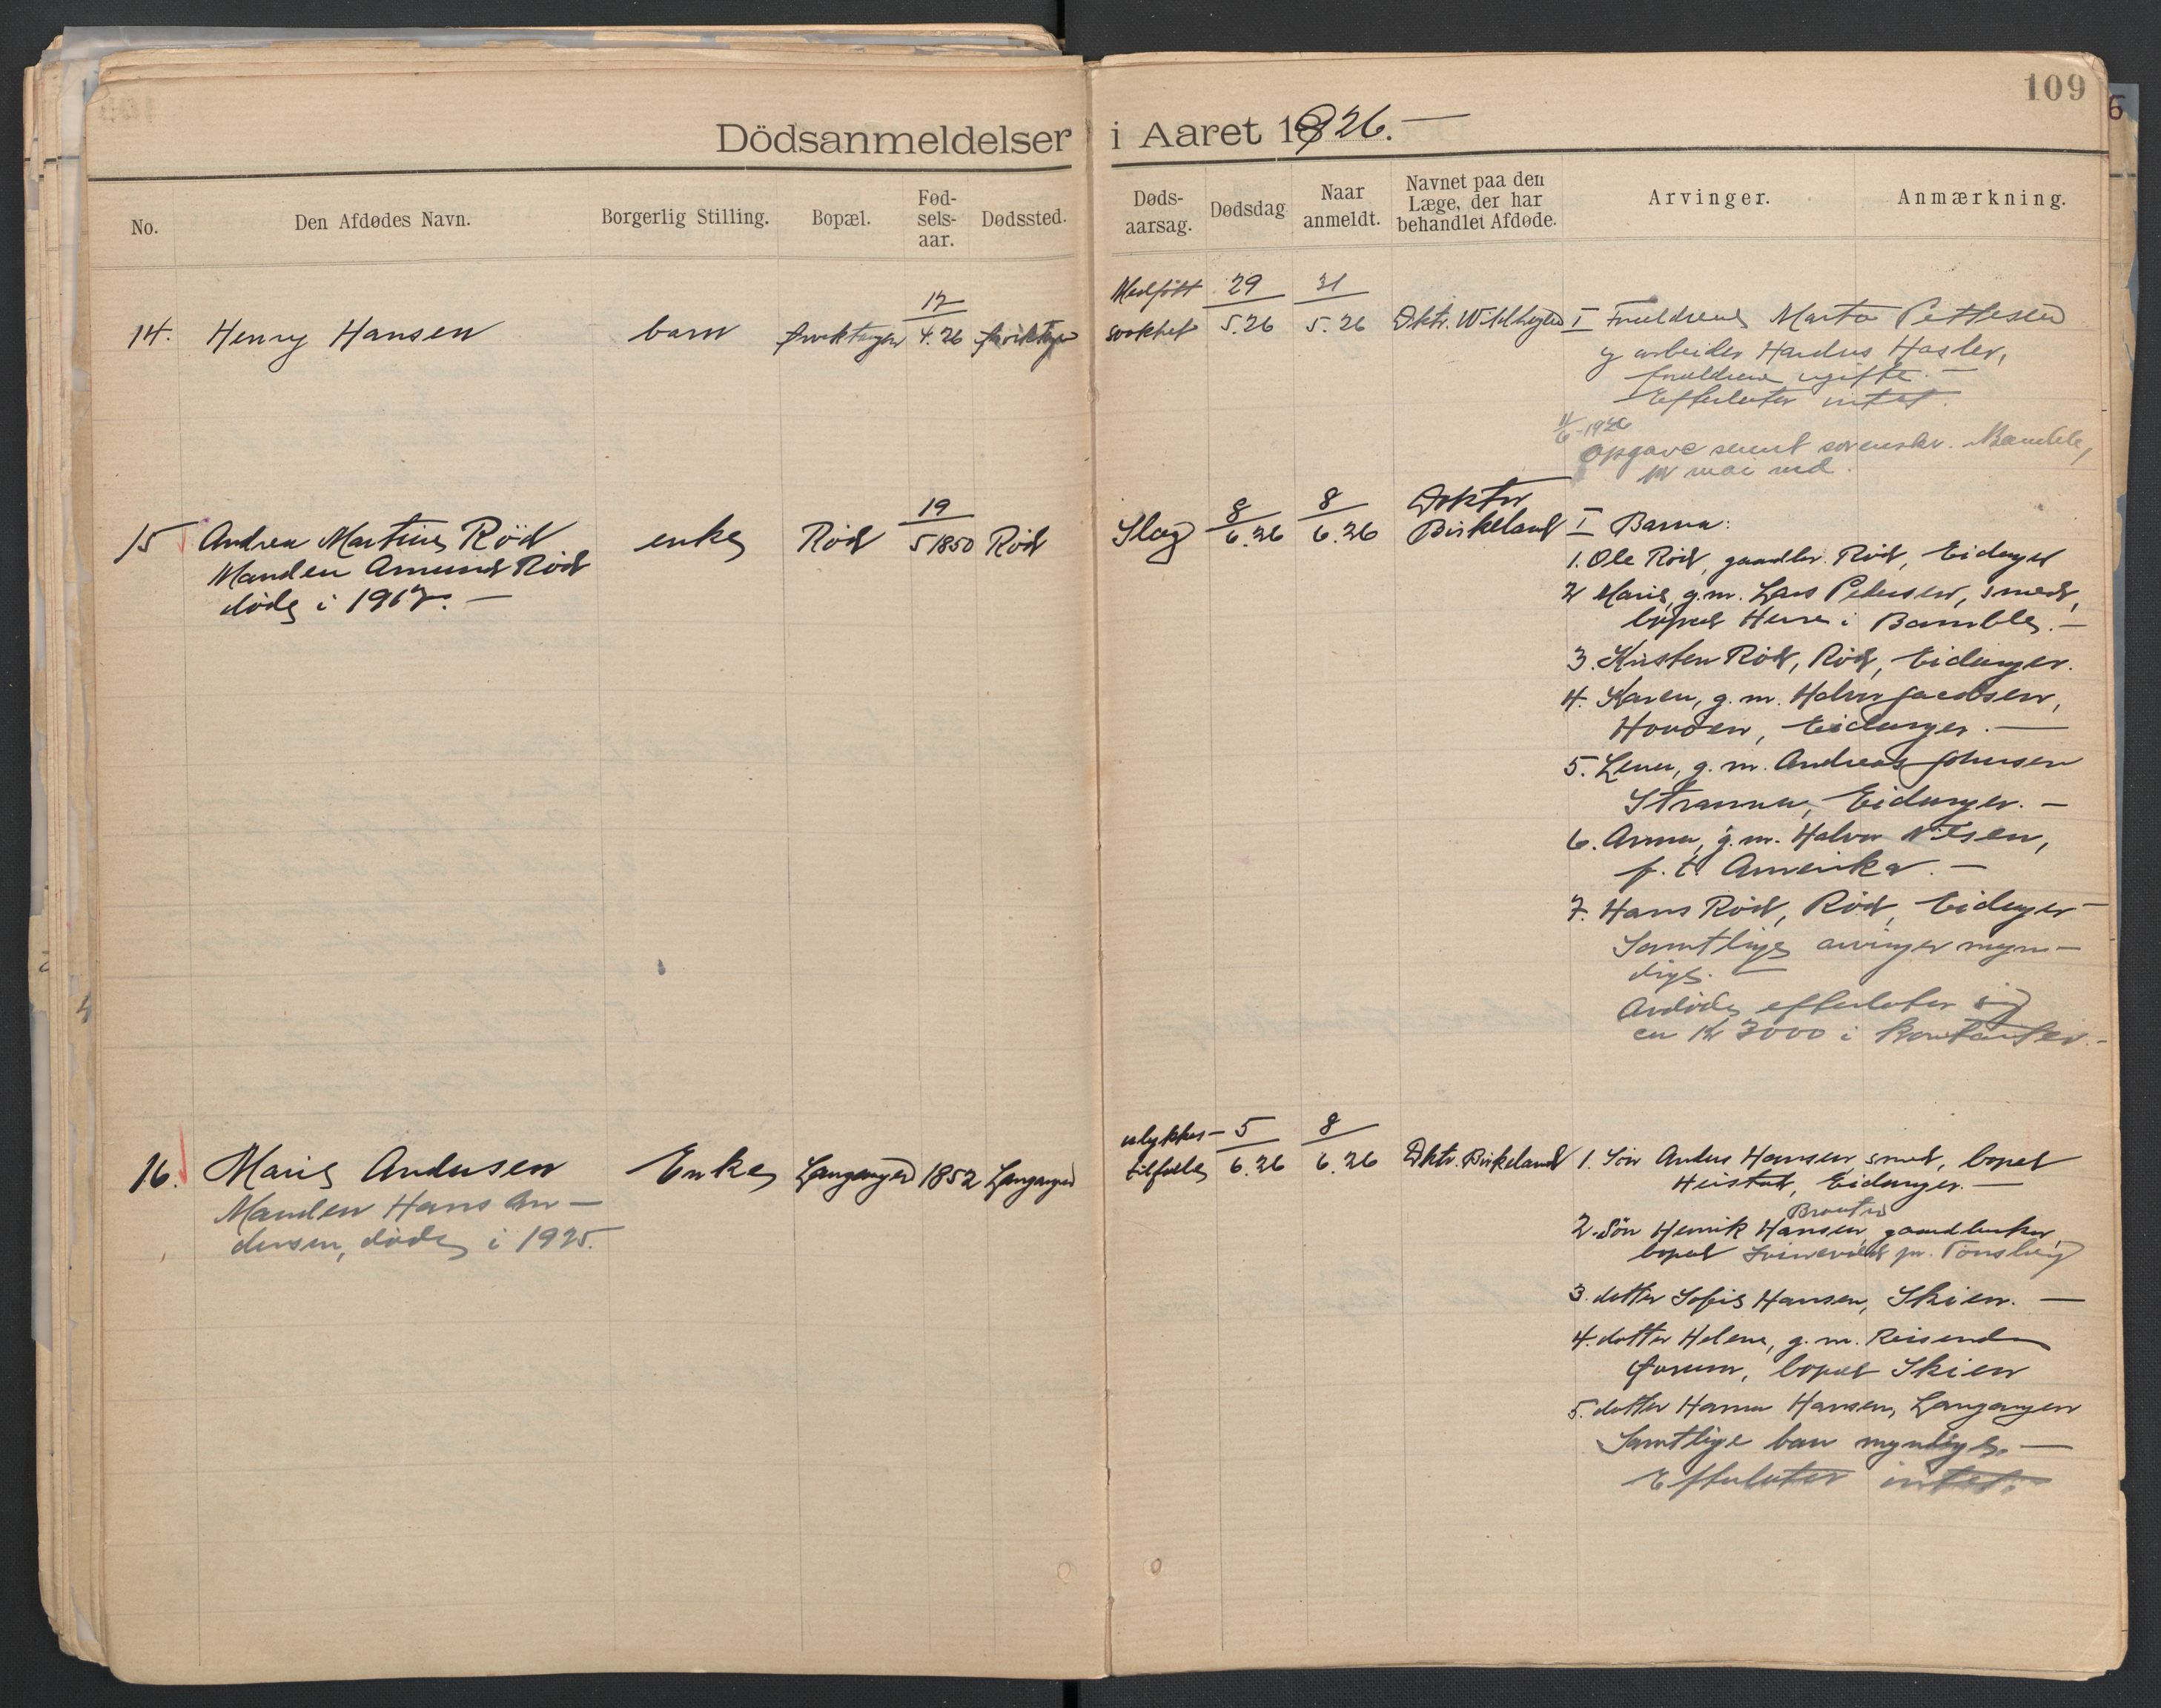 109
Dödsanmeldelser i Aaret 1926.—
No. Den Afdødes Navn. Borgerlig Stilling. Bopæl. Fød-sels-aar. Dødssted. Døds-aarsag. Dødsdag Naar anmeldt. Navnet paa den Læge, der har behandlet Afdøde. Arvinger. Anmærkning.
14. Henry Hansen barn 17/4.26 Medfött svakhet 29/5.26 31/5.26 Dktr. I Forældrene Marta Pettersen
og arbeider Hasler,
forældrene ugifte.—
Efterlater intet.
11/6-1926
Opgave sendt sorenskr. Bamble,
pr mai md.
15 Andrea Martine Röd enke Röd 19/5 1850 Röd Slag 8/6.26 8/6.26 Doktor Birkeland I Barn:
Manden Amund Röd
døde i 1917.—
1. Ole Röd, gaardbr. Röd, Eidanger
2 Marie, g.m. Lars Pedersen, smed,
bopæl Herre i Bamble.—
3. Kristen Röd, Röd, Eidanger.
4. Karen, g.m. Halvor Jacobsen,
Hovden, Eidanger.—
5. Lena, g.m. Andreas Johnsen
Stranna, Eidanger.—
6. Anna, g.m. Halvor Nilsen,
f.t. Amerika.—
7. Hans Röd, Röd, Eidanger—
Samtlige arvinger myn-
dige.—
Avdöde efterlater sig
ca Kr 7000 i kontanter.—
16. Marie Andersen Enke Langangen 1852 Langangen ulykkes-tilfælle 5/6.26 8/6.26 Dktr. Birkeland 1. Sön Anders Hansen, smed, bopæl
Manden Hans An-
dersen, døde i 1925.
Heistad, Eidanger.—
2. Sön Henrik Hansen, gaardbruker,
bopæl pr. Tönsberg
3. datter Sofie Hansen, Skien.—
4. datter Helene, g.m. Reisende
bopæl Skien
5. datter Hanna Hansen, Langangen
Samtlige barn myndige.—
Efterlater intet.